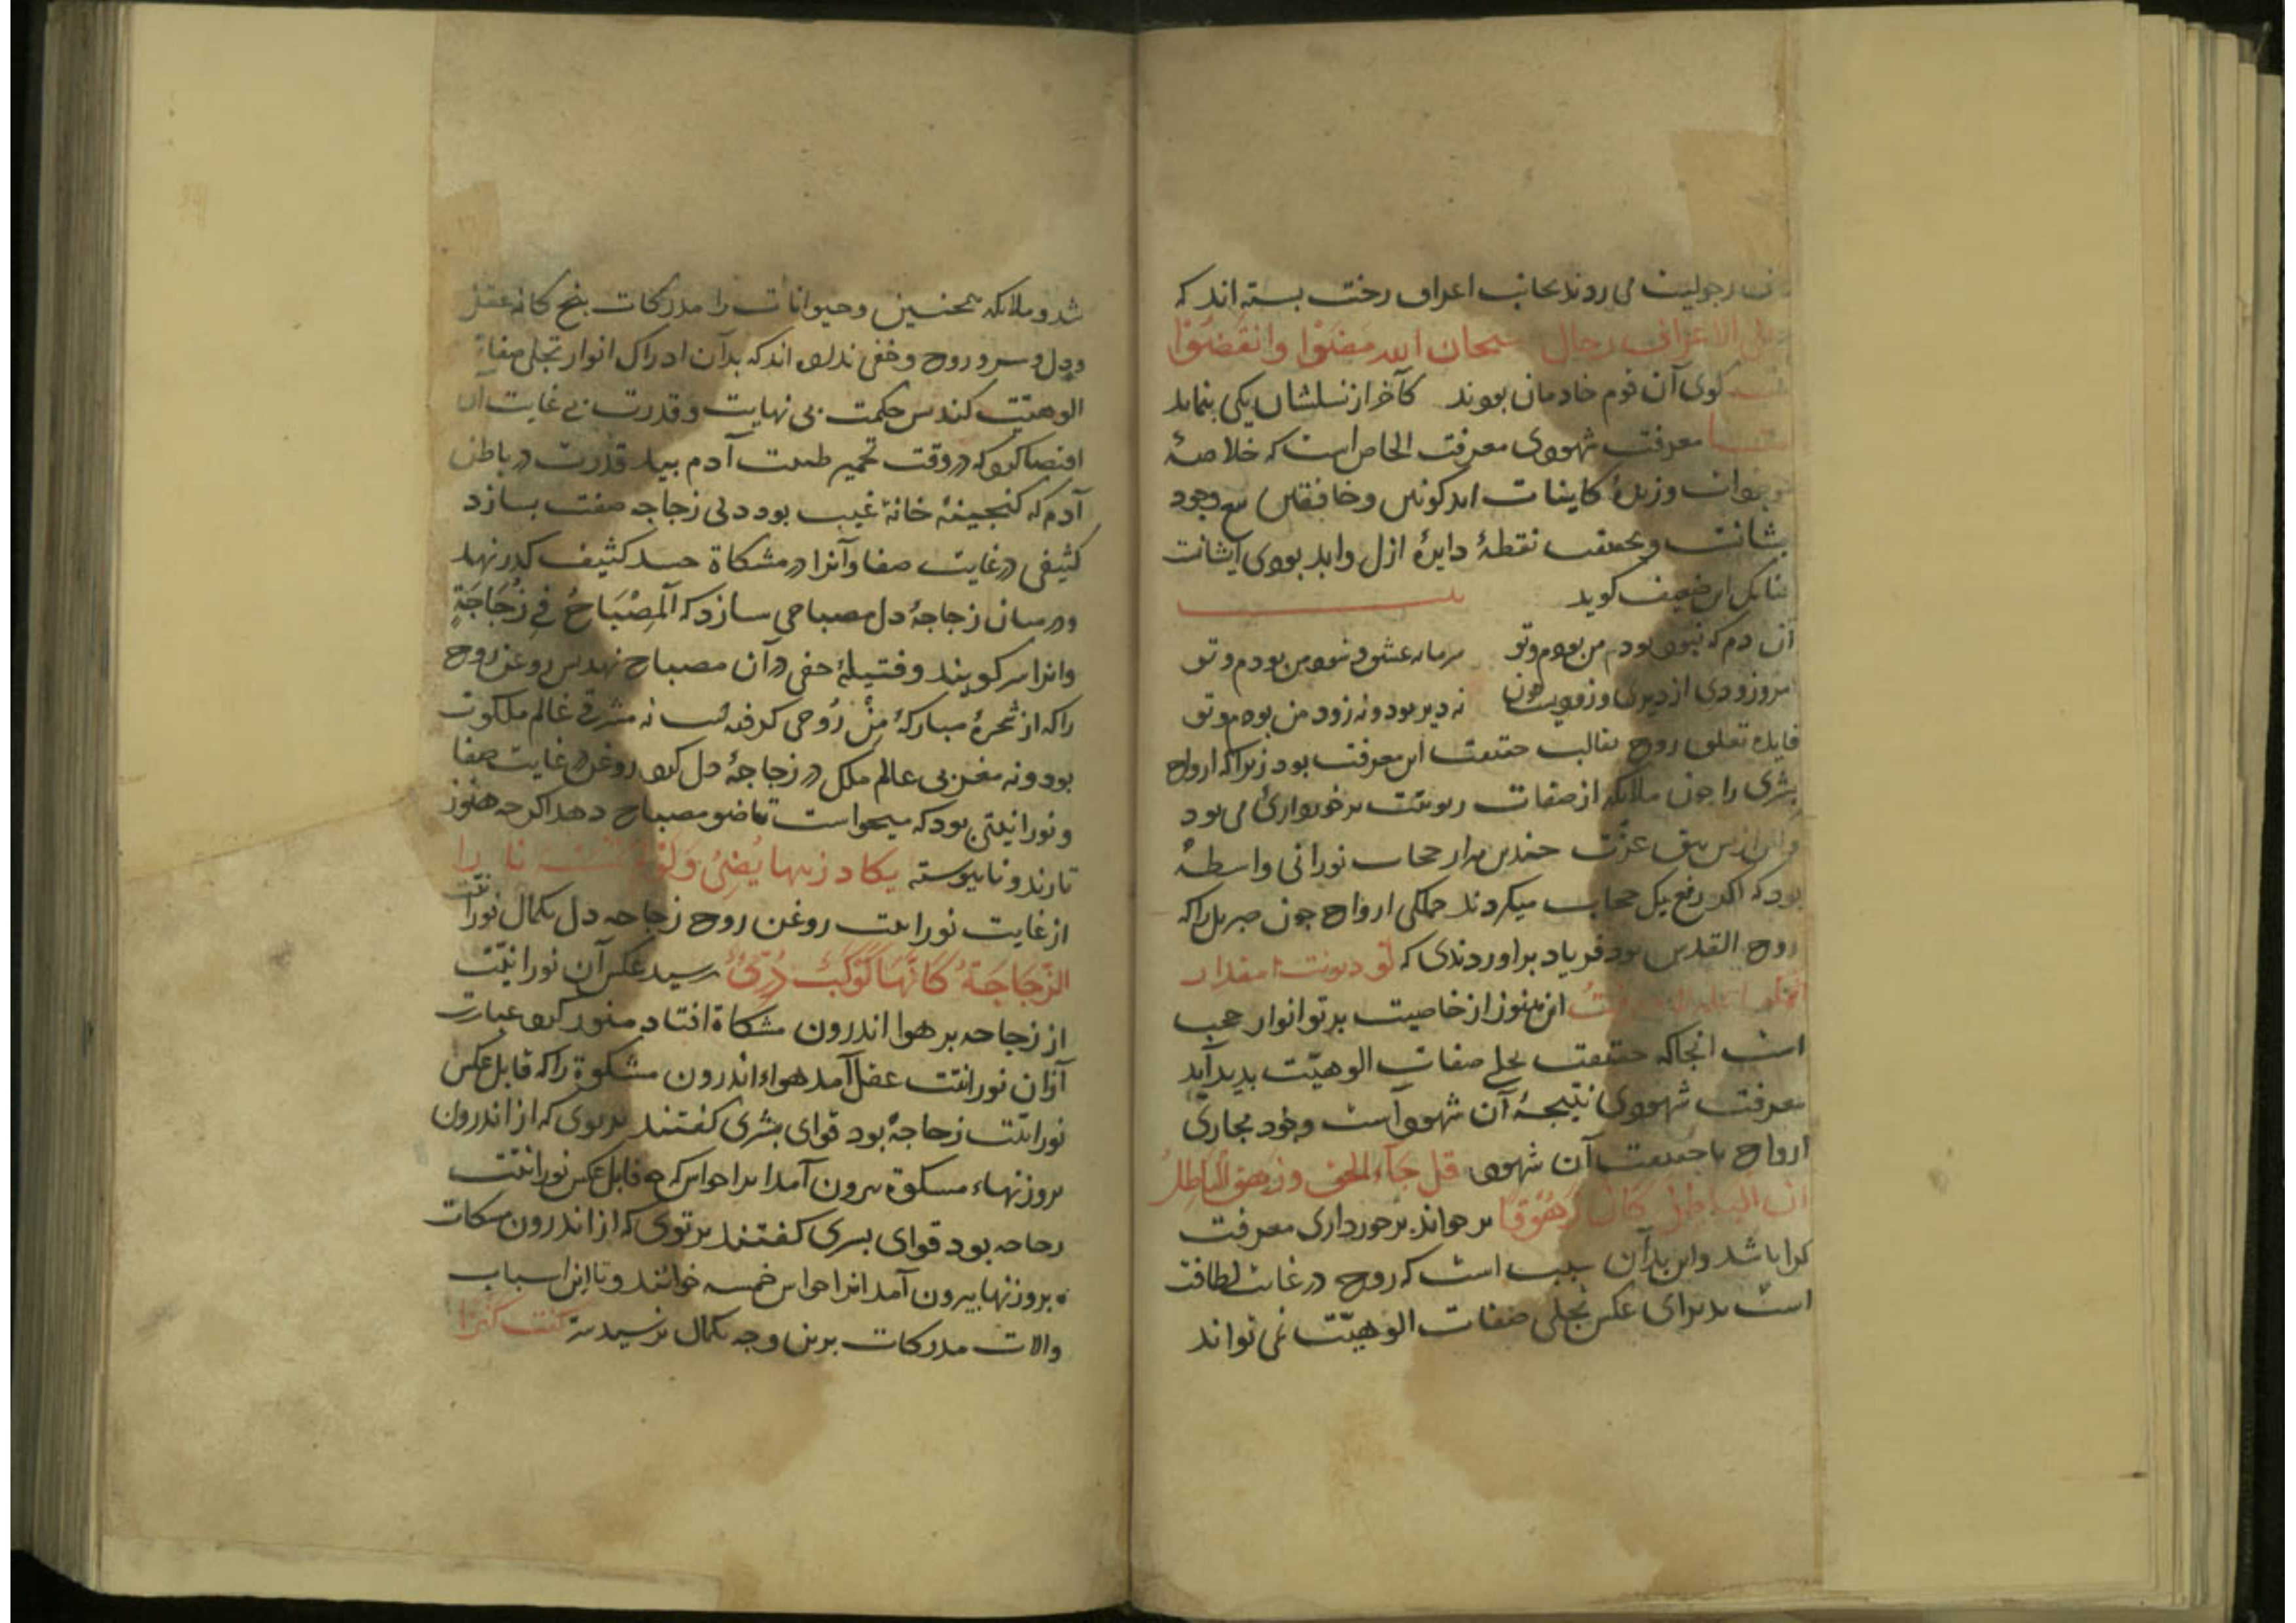 رجولیت می روند بجانب اعراف رخت بسته اند که
علی الاعراف رجال سبحان الله مضوا وانقضوا
کوی آن قوم خادمان بودند کآخر از نسلشان یکی بنماید
معرفت شهودی معرفت الخاص است که خلاصهٔ
وزبدهٔ کاینات اند کونین وخافقین تبع وجود
نقطهٔ دایرهٔ ازل وابد بودی ایشانست
این ضعیف کوید
آن دم که نبود بود من بودم وتو سرمایه عشق من بودم وتو
امروز ودی از دیری وزودیست نه دیر بود ونه زود من بودم وتو
فایده تعلق روح بقالب حقیقت این معرفت بود زیراکه ارواح
بشری را چون ملائکه از صفات ربوبیت برخورداری می بود
عزت چندین هزار حجاب نورانی واسطهٔ
بود که اکر رفع یک حجاب میکردند جملکی ارواح چون جبریل راکه
روح القدس بود فریاد براوردندی که لو دنوت
این هنوز از خاصیت برتو انوار حجب
است انجاکه حقیقت تجلی صفات الوهیّت بدید آید
معرفت شهودی نتیجهٔ آن شهود است وجود مجازی
ارواح با حقیقت آن شهود قل جآء الحق وزهق الباطل
ان الباطل کان زهوقا بر خواند برخورداری معرفت
کرا باشد واین بدآن سبب است که روح در غایت لطافت
است بذیرای عکس تجلی صفات الوهیّت نمی تواند
شد وملائکه همچنین وحیوانات را مدرکات بنج کانه عقل
ودل وسر وروح وخفی نداده اند که بدآن ادراک انوار تجلی صفات
الوهیّت کنند بس حکمت بی نهایت وقدرت بی غایت آن
اقتضا کرد که در وقت تخمیر طینت آدم بید قدرت در باطن
آدم که کنجینهٔ خانهٔ غیب بود دلی زجاجه صفت بسازد
کثیفی در غایت صفا وآنرا در مشکاة جسد کثیف کدر نهد
ودر میان زجاجهٔ دل مصباحی سازد که المصباح فی زجاجة
وانرا سر کویند وفتیلهٔ خفی در آن مصباح نهد بس روغن روح
راکه از شجرهٔ مبارکهٔ من روحی کرفته است نه شرقی عالم ملکوت
بود ونه مغربی عالم ملک در زجاجهٔ دل کرد روغن در غایت صفا
ونورانیتی بود که میخواست تا ضو مصباح دهد اکرچه هنوز
نار بدو نابیوسته یکاد زیتها یضئ ولو نارا
از غایت نورانیت روغن روح زجاجه دل بکمال نورانیّت
الزجاجة کانها کوکب درّیّ رسید عکس آن نورانیّت
از زجاجه بر هوا اندرون مشکاة افتاد منور کرد عبارت
ازان نورانیّت عقل آمد هواء اندرون مشکوة راکه قابل عکس
نورانیّت زجاجهٔ بود قوای بشری کفتند برتوی که از اندرون
بروزنهاء مشکوة بیرون آمد انرا حواس که قابل عکس نورانیّت
زجاجه بود قوای بشری کفتند برتوی که از اندرون مشکات
بروزنها بیرون آمد انرا حواس خمسه خوانند وتا این اسباب
والات مدرکات برین وجه بکمال نرسید سر کنت کنزا